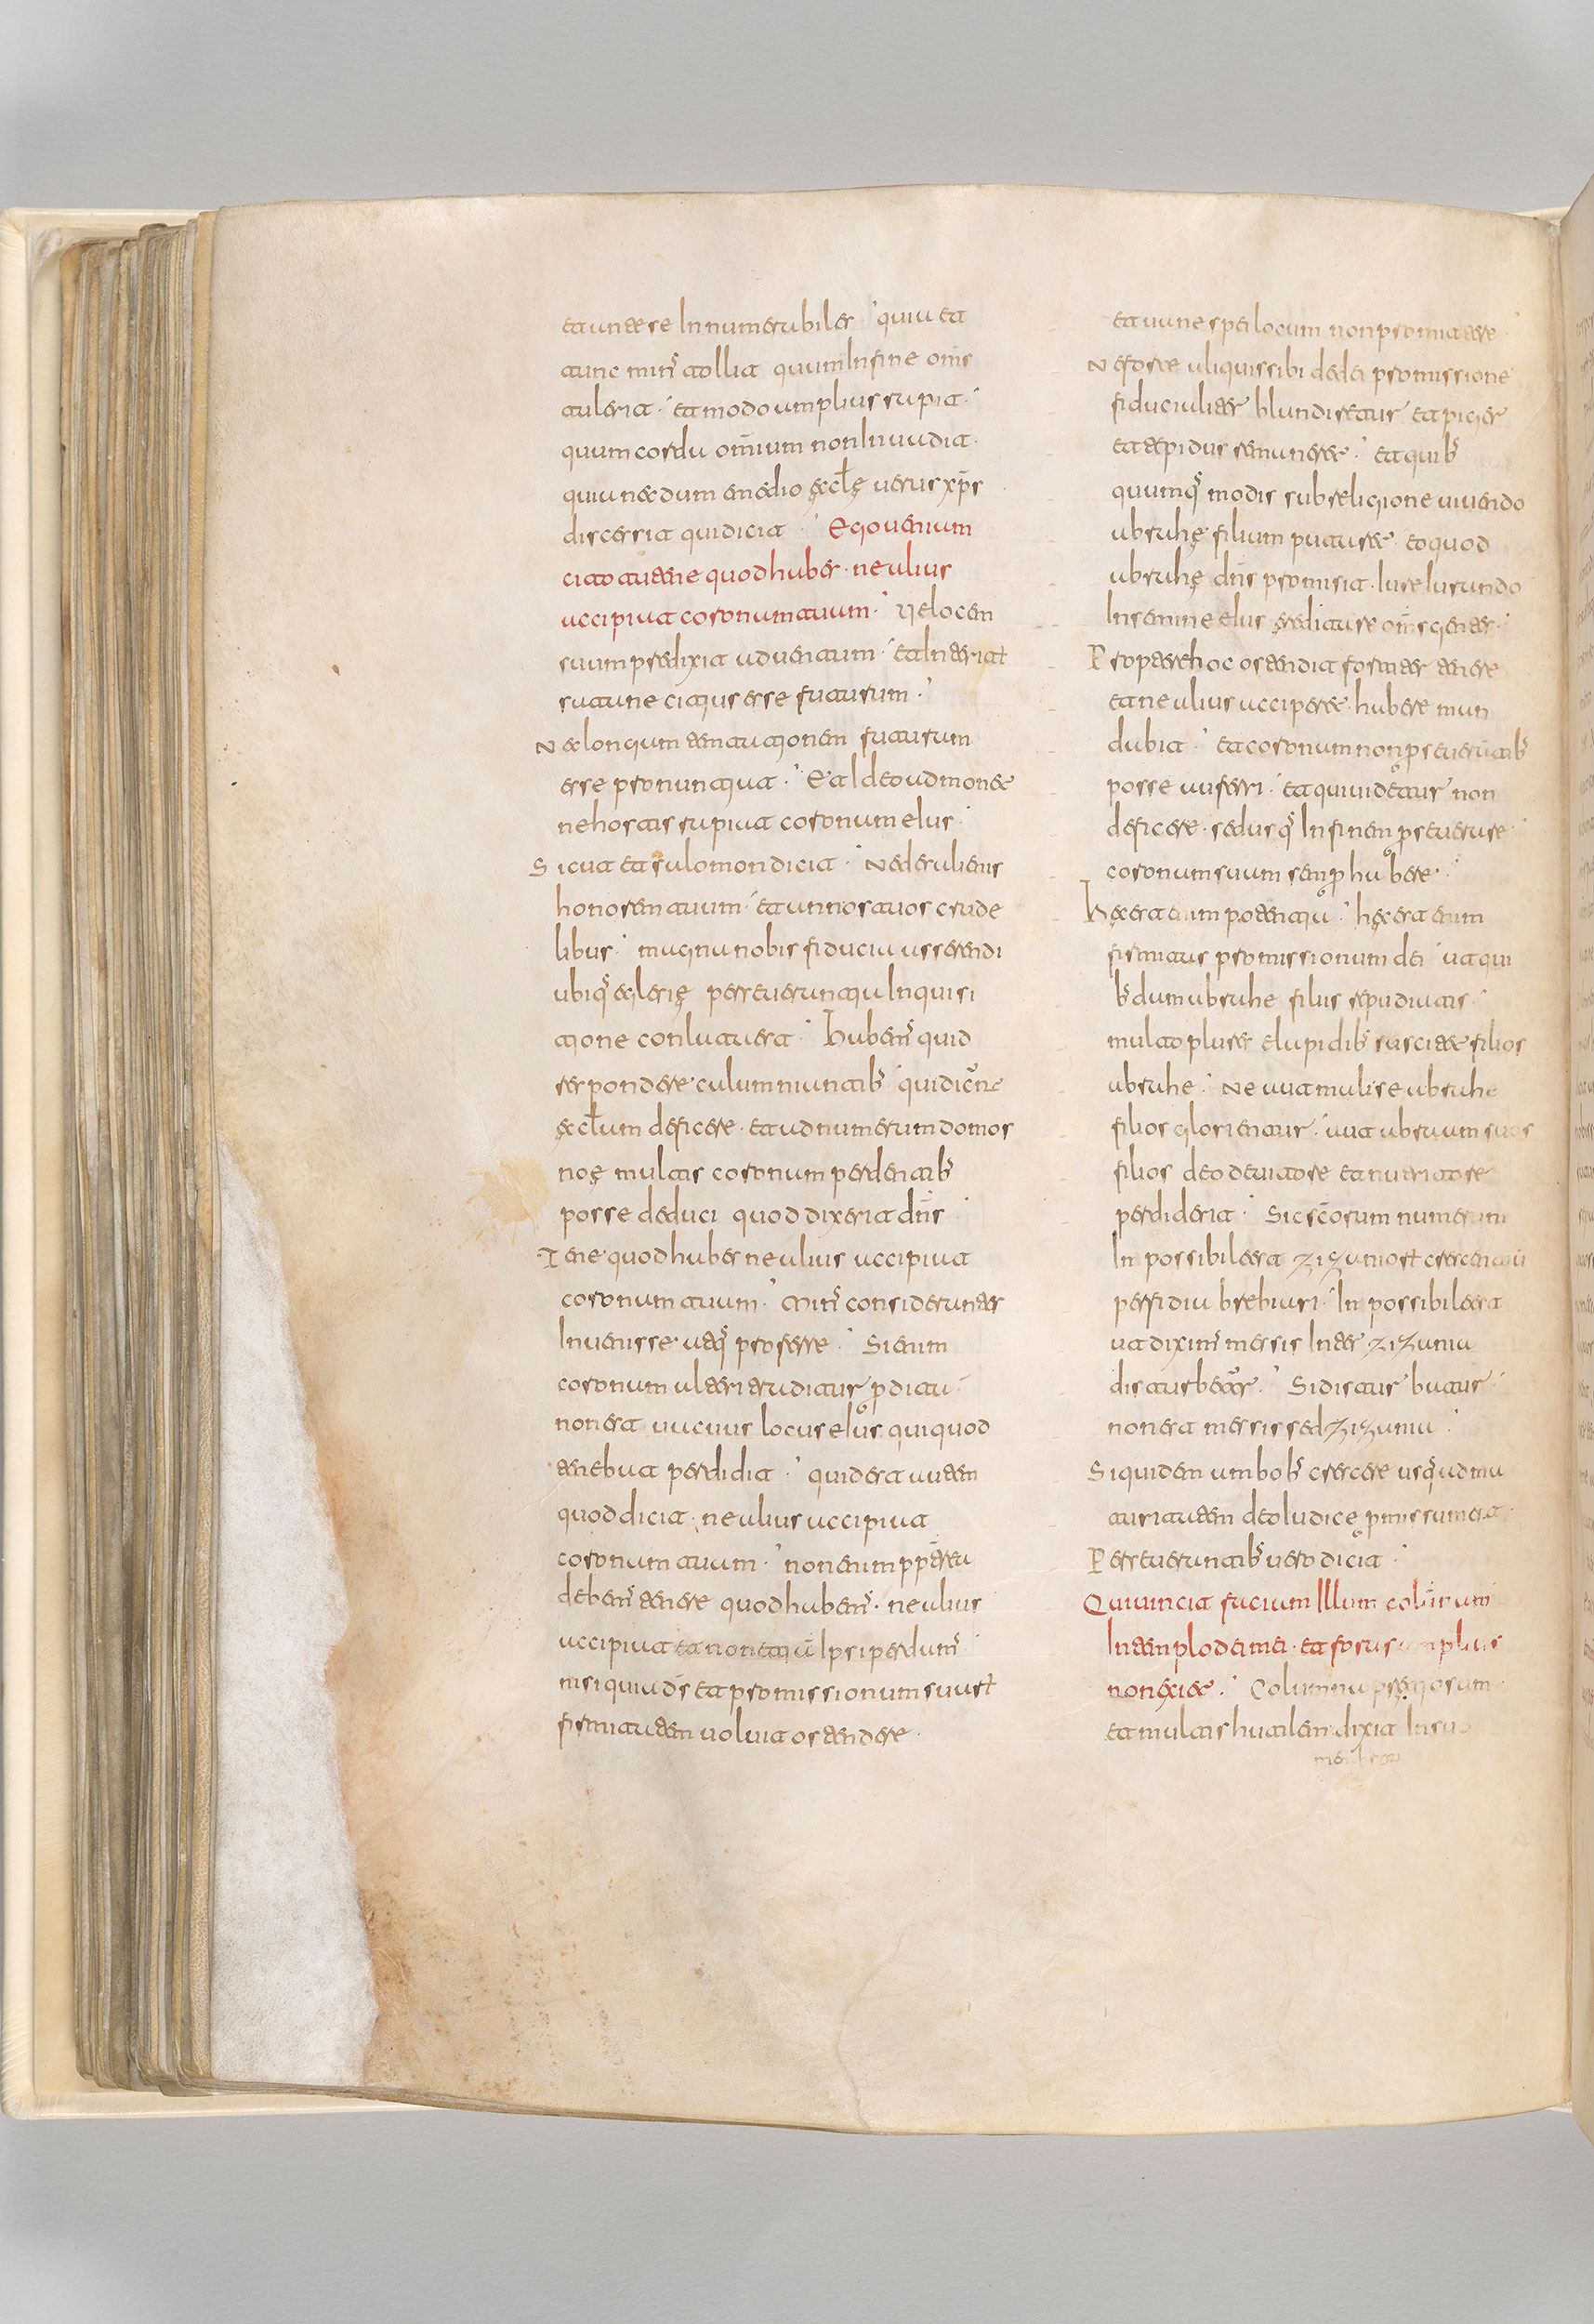 et ante se Innumerabiles quia et
tunc min̄ tollit quum In fine om̄s
tulerit · et modo amplius rapit ·
quum corda om̄ium non Inuadit ·
quia necdum e medio ęclę uerus xp̄s
discessit qui dicit · Ego ueniam
cito tu tene quod habes · ne alius
accipiat coronam tuam · Uelocem
suum predixit aduentum · et Interitũ
satane citius esse futurum ·
Nec longam temtationem futuram
esse pronuntiat · Et Ideo admonet
ne hostis rapiat coronam eIus ·
Sicut et salomon dicit · Ne des alienis
honorem tuum · et annos tuos crude
libus · magna nobis fiducia asserendi
ubiq̄ eglesię perseuerantia Inquisi
tione conlata est · habem̄ quid
respondere calumniantib; qui dicūt
ęclam deficere · et ad numerum domos
noę multis coronam perdentib;
posse deduci quod dixerit dn̄s
Tene quod habes ne alius accipiat
coronam tuam · Min̄ considerantes
Inuenisse utq̄ proferre · Si enim
coronam alteri traditur p̄dita
non est uacuus locus eIus qui quod
tenebat perdidit · quid est autem
quod dicit · ne alius accipiat
coronam tuam · non enim pp̄terea
debem̄ tenere quod habem̄ · ne alius
accipiat et non etiā Ipsi perdam̄
nisi quia ds̄ et promissionum suarũ
firmitatem uoluit ostendere ·
et uane spei locum non promitteret
Ne forte aliquis sibi de dei promissione
fiducialiter blandiretur et piger
et tepidus remaneret · et quib;
quumq̄ modis sub religione uiuendo
abrahę filium putaret · eo quod
abrahę dn̄s promisit · Iure Iurando
In semine eIus ęreditare om̄s gentes ·
Propter hoc ostendit fortiter tenere
et ne alius acciperet · habere man
dabit · et coronam non p̄seuerantib;
posse auferri · et qui uidetur non
deficere · sed usq̄ In finem p̄seuerare
coronam suam semp̄ habere ·
hęc est enim potentia · hęc est enim
firmitas promissionum dei ut qui
b; dum abrahe filiis repudiatis ·
multo plures e lapidib; suscitet filios
abrahe · Ne aut mali se abrahe
filios glorientur · aut abraam suos
filios deo deuitore et nutritore
perdiderit · Sic scōrum numerum
In possibile est zizaniorũ crescentiũ
perfidia brebiari · In possibile est
ut dixim̄ messis Inter zizania
disturbetur · Si disturbatur
non est messis sed zizania ·
Siquidem ambob; crescere usq̄ ad ma
turitatem deo Iudice p̄missum est ·
Perseuerantib; uero dicit ·
Qui uincit faciam Illum
In templo dei mei · et foras amplius
non exiet · Columna pretiosam
et multis hutilem dixit In suo